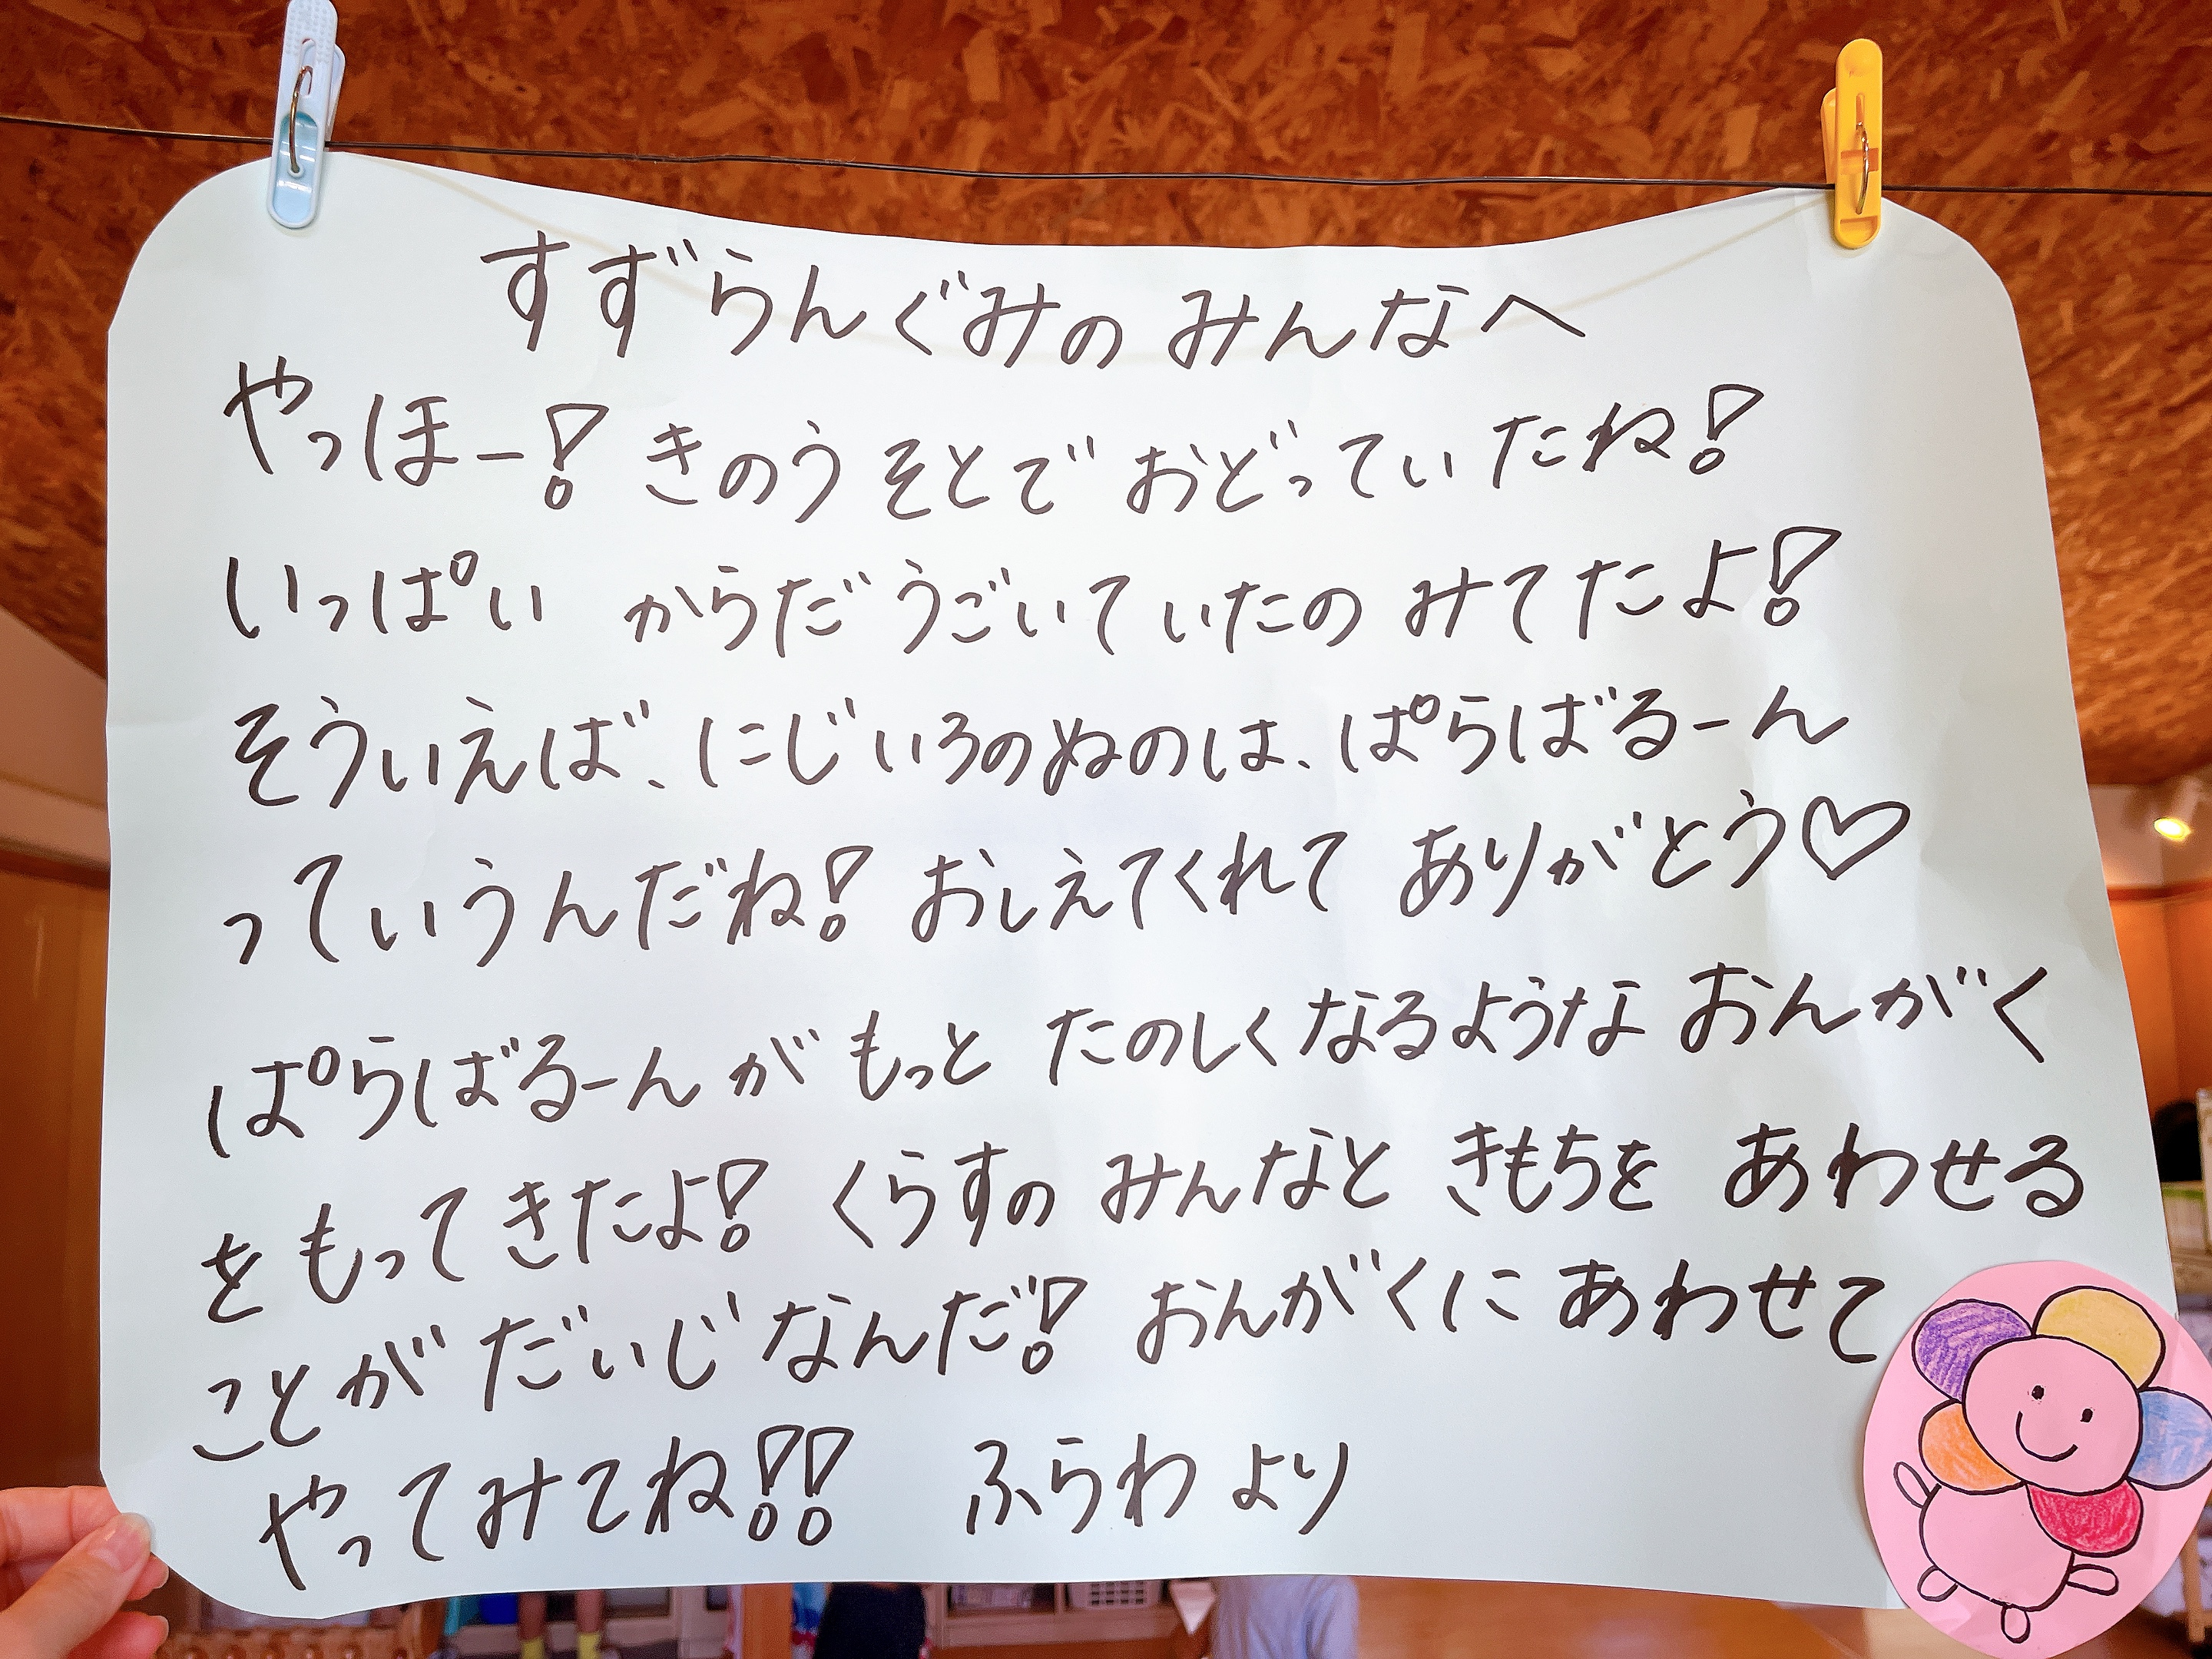 すずらんぐみの みんなへ
やっほー! きのう そとで おどっていたね!
いっぱい からだ うごいていたの みてたよ!
そういえば、にじいろのぬのは、ぱらばるーん
っていうんだね! おしえてくれて ありがとう♡
ぱらばるーんが もっと たのしく なるような おんがく
を もってきたよ! くらすの みんなと きもちを あわせる
ことが だいじ なんだ! おんがくに あわせて
やってみてね!! ふらわ より